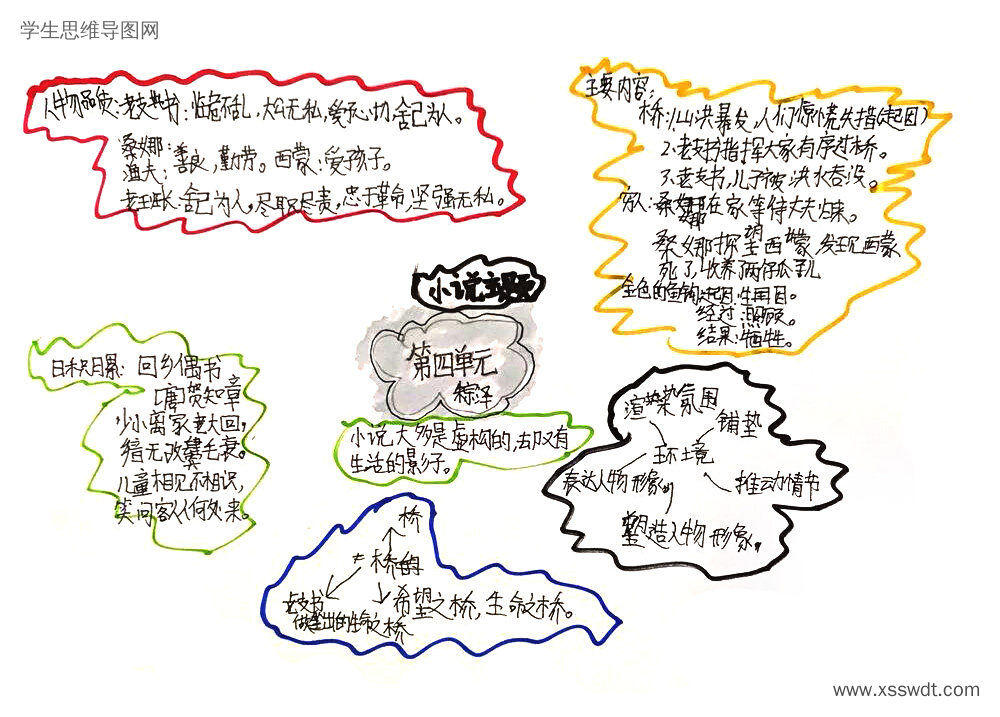 学生思维导图网
人物品质:老支书:临危不乱,大公无私,爱民心切,舍己为人。
桑娜:
渔夫:善良,勤劳。西蒙:爱孩子。
老班长:舍己为人,尽职尽责,忠于革命,坚强无私。
主要内容:
桥:1.山洪暴发,人们惊慌失措(起因)
2.老支书指挥大家有序过桥。
3.老支书,儿子被洪水吞没。
穷人:桑娜在家等待丈夫归来。
桑娜探望西蒙,发现西蒙
死了,收养两个孤儿
金色的鱼钩:起因:牛再目。
经过:照顾。
结果:牺牲。
小说主题
第四单元
小说大多是虚构的,却又有
生活的影子。
日积月累:回乡偶书
[唐]贺知章
少小离家老大回,
乡音无改鬓毛衰。
儿童相见不相识,
笑问客从何处来。
渲染氛围
铺垫
环境
表达人物形象
推动情节
塑造人物形象。
桥
桥的
老支书
做出的生命之桥
希望之桥,生命之桥。
www.xsswdt.com